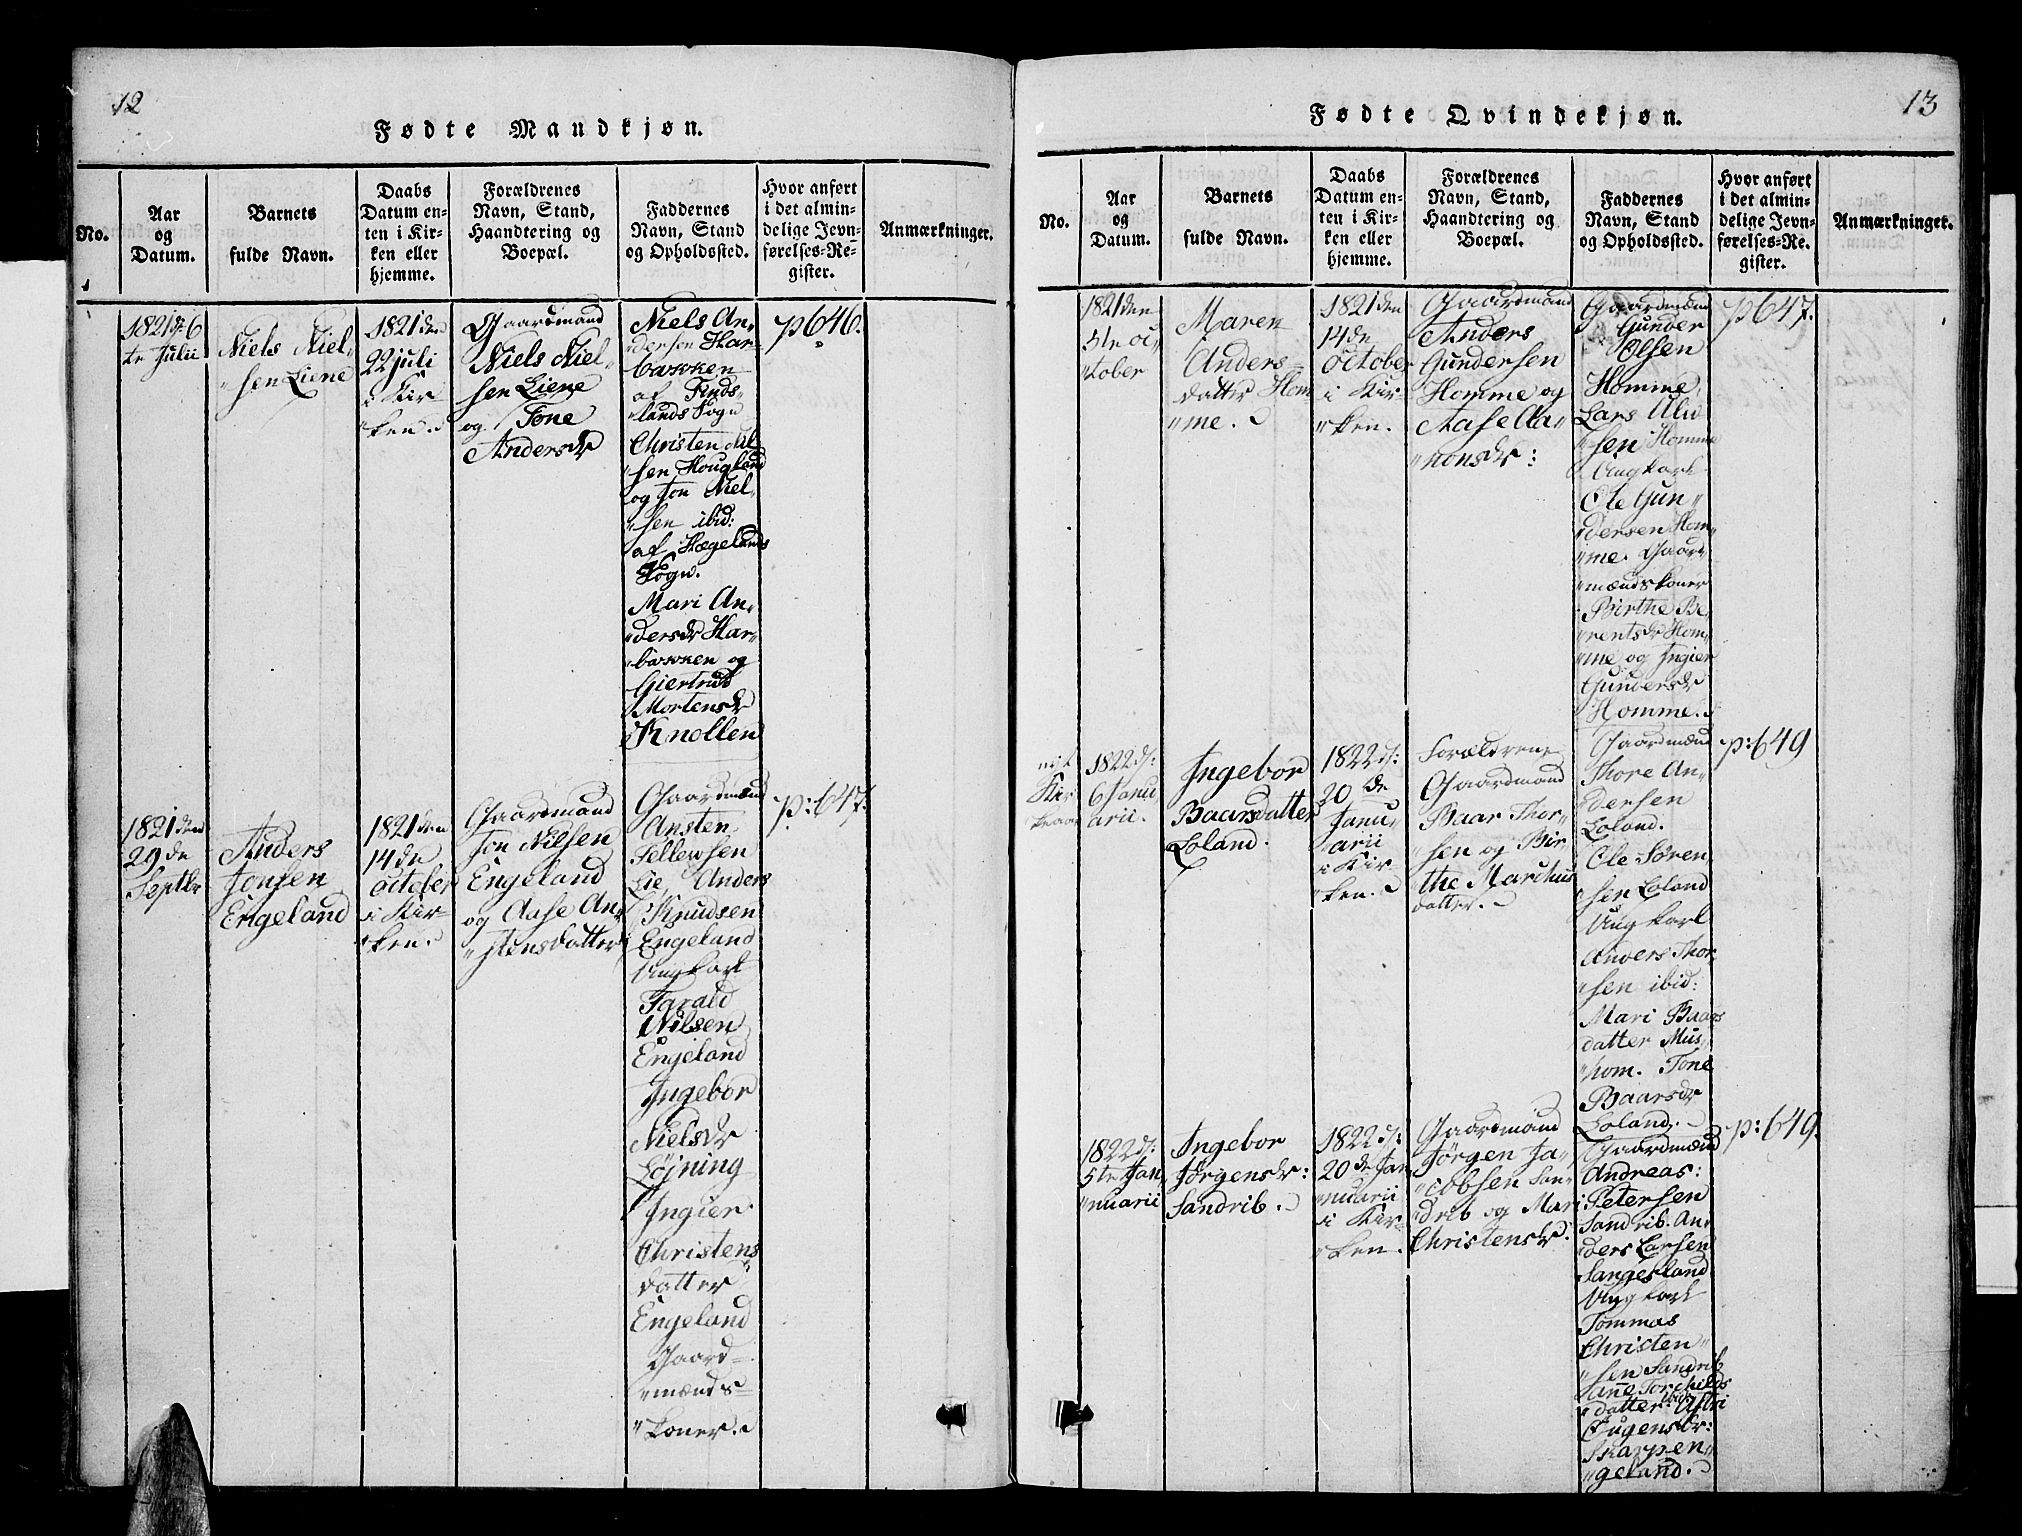 12
Fødte Mandkjøn.
No.
Aar
og
Datum.
Barnets
fulde Navn.
Daabs
Datum en-
ten i Kir-
ken eller
hjemme.
Forældrenes
Navn, Stand,
Haandtering og
Boepæl.
Faddernes
Navn, Stand
og Opholdssted.
Hvor anført
i det almin-
delige Jevn-
førelses-Re-
gister.
Anmærkninger.
1821 d: 6
te Julii
Niels Niel-
"sen Liene
1821 den
22 juli
i Kir-
"ken.
Gaardmand
Niels Niel-
sen Liene
og Tone
Andersdr
Niels An-
"dersen Har-
"bakken
af Finds-
"lands Sogn
Christen Nil-
"sen Hougland
og Jon Niel-
"sen ibid:
af Hægelands
Sogn.
Mari An-
"dersdr Har-
"bakken og
Giertrud
Mortensdr
Knollen
p 646.
1821 den
29 de
Septbr
Anders
Jonsen
Engeland
1821 den
14 de
october
i Kir-
"ken.
Gaardmand
Jon Nilsen
Engeland
og Aase An-
"stensdatter
Gaardmænd
Ansten
Fellewsen
Lie, Anders
Knudsen
Engeland
Ungkarl
Tarald
Nilsen
Engeland
Ingebor
Nielsdr
Løjning
Ingier
Christens
datter
Engeland
Gaard-
"mænds-
"koner.
p: 647.
13
Fødte Qvindekjøn.
No.
Aar
og
Datum.
Barnets
fulde Navn.
Daabs
Datum en-
ten i Kir-
ken eller
hjemme.
Forældrenes
Navn, Stand,
Haandtering og
Boepæl.
Faddernes
Navn, Stand
og Opholdssted.
Hvor anført
i det almin-
delige Jevn-
førelses-Re-
gister.
Anmærkninger.
1821 den
5te oc-
"tober
Maren
Anders-
datter Hom
"me.
1821 den
14 de
october
i Kir-
"ken.
Gaardmand
Anders
Gundersen
Homme og
Aase Aa-
"nonsdr:
Gaardmænd
Gunder
Olsen
Homme,
Lars Alid
"sen Homme
Ungkarl
Ole Gun-
"dersen Hom-
"me. Gaard
"mændskoner
Birthe Be
"rentsdr Hom-
"me og Ingier
Gundersdr
Homme.
p 647.
nyt
Kir
keaar
1822 d:
6 Janu
arii.
Ingebor
Baarsdatter
Loland.
1822 d:
20 de
Janu-
arii
i Kir-
"ken.
Forældrene
Gaardmand
Baar Thor-
"sen og Bir
the Marchus
datter.
Gaardmænd
Thore An-
"dersen
Loland.
Ole Søren
"sen Loland
Ungkarl
Anders Thor
"sen ibid:
Mari Baars
datter Mus-
"hom. Tone
Baarsdr
Loland.
p: 649
1822 d:
5te Jan
"nuarii
Ingebor
Jørgensdr:
Sandrib.
1822 d:
20 de Jan
"nuarii
i Kir-
"ken.
Gaardmand
Jørgen Ja-
"cobsen San-
"drib og Mari
Christensdr.
Gaardmænd
Andreas:
Petersen
Sandrib. An-
"ders Larsen
Sangesland
Ungkarl
Tommas
Christen-
"sen Sandrib
Tarjuls
datter ibid: Astri
Skarpen-
"geland.
p: 649.